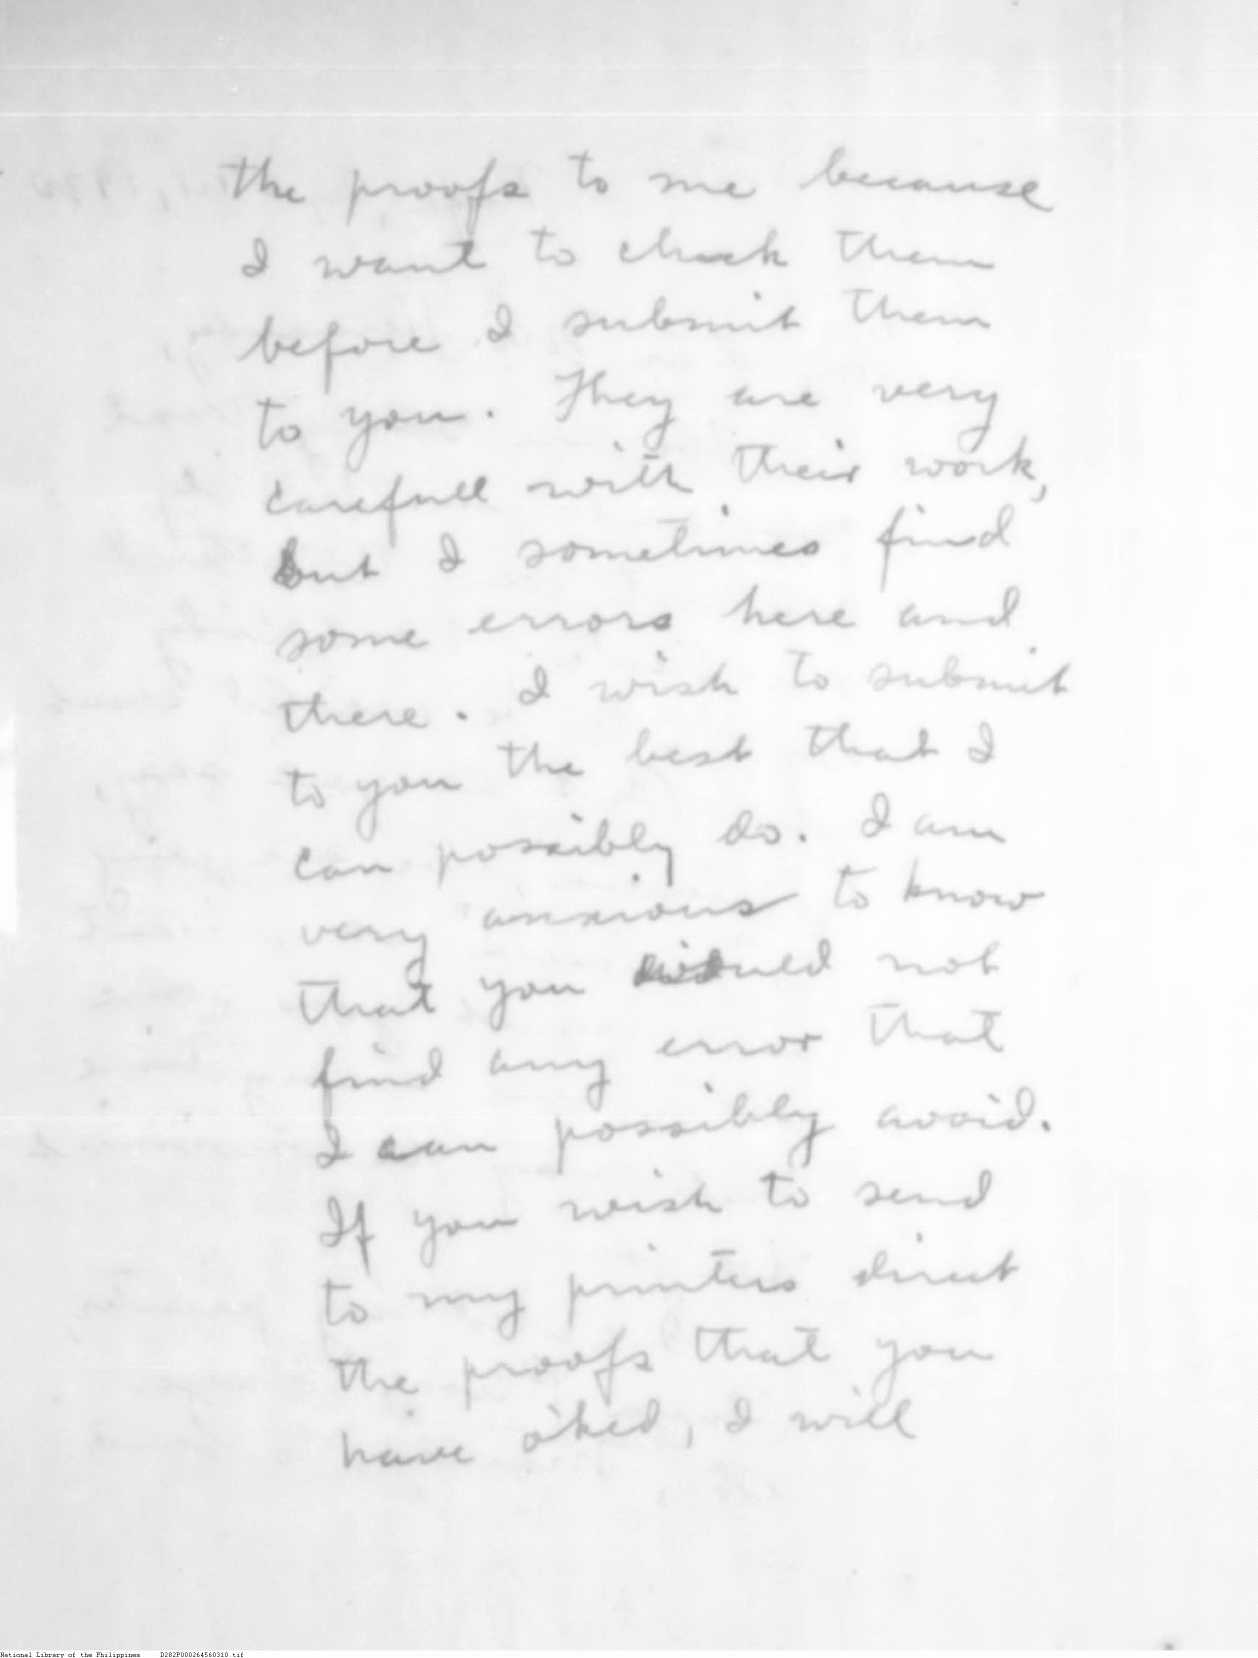 the proofs to me because
I want to check them
before I submit them
to you. They are very
carefull with their work,
but I sometimes find
some errors here and
there. I wish to submit
to you the best that I
can possibly do. I am
very anxious to know
that you would not
find any error that
I can possibly avoid.
If you wish to send
to my printers direct
the proofs that you
have o'ked, I will
National Library of the Philippines D282P000264560310.tif